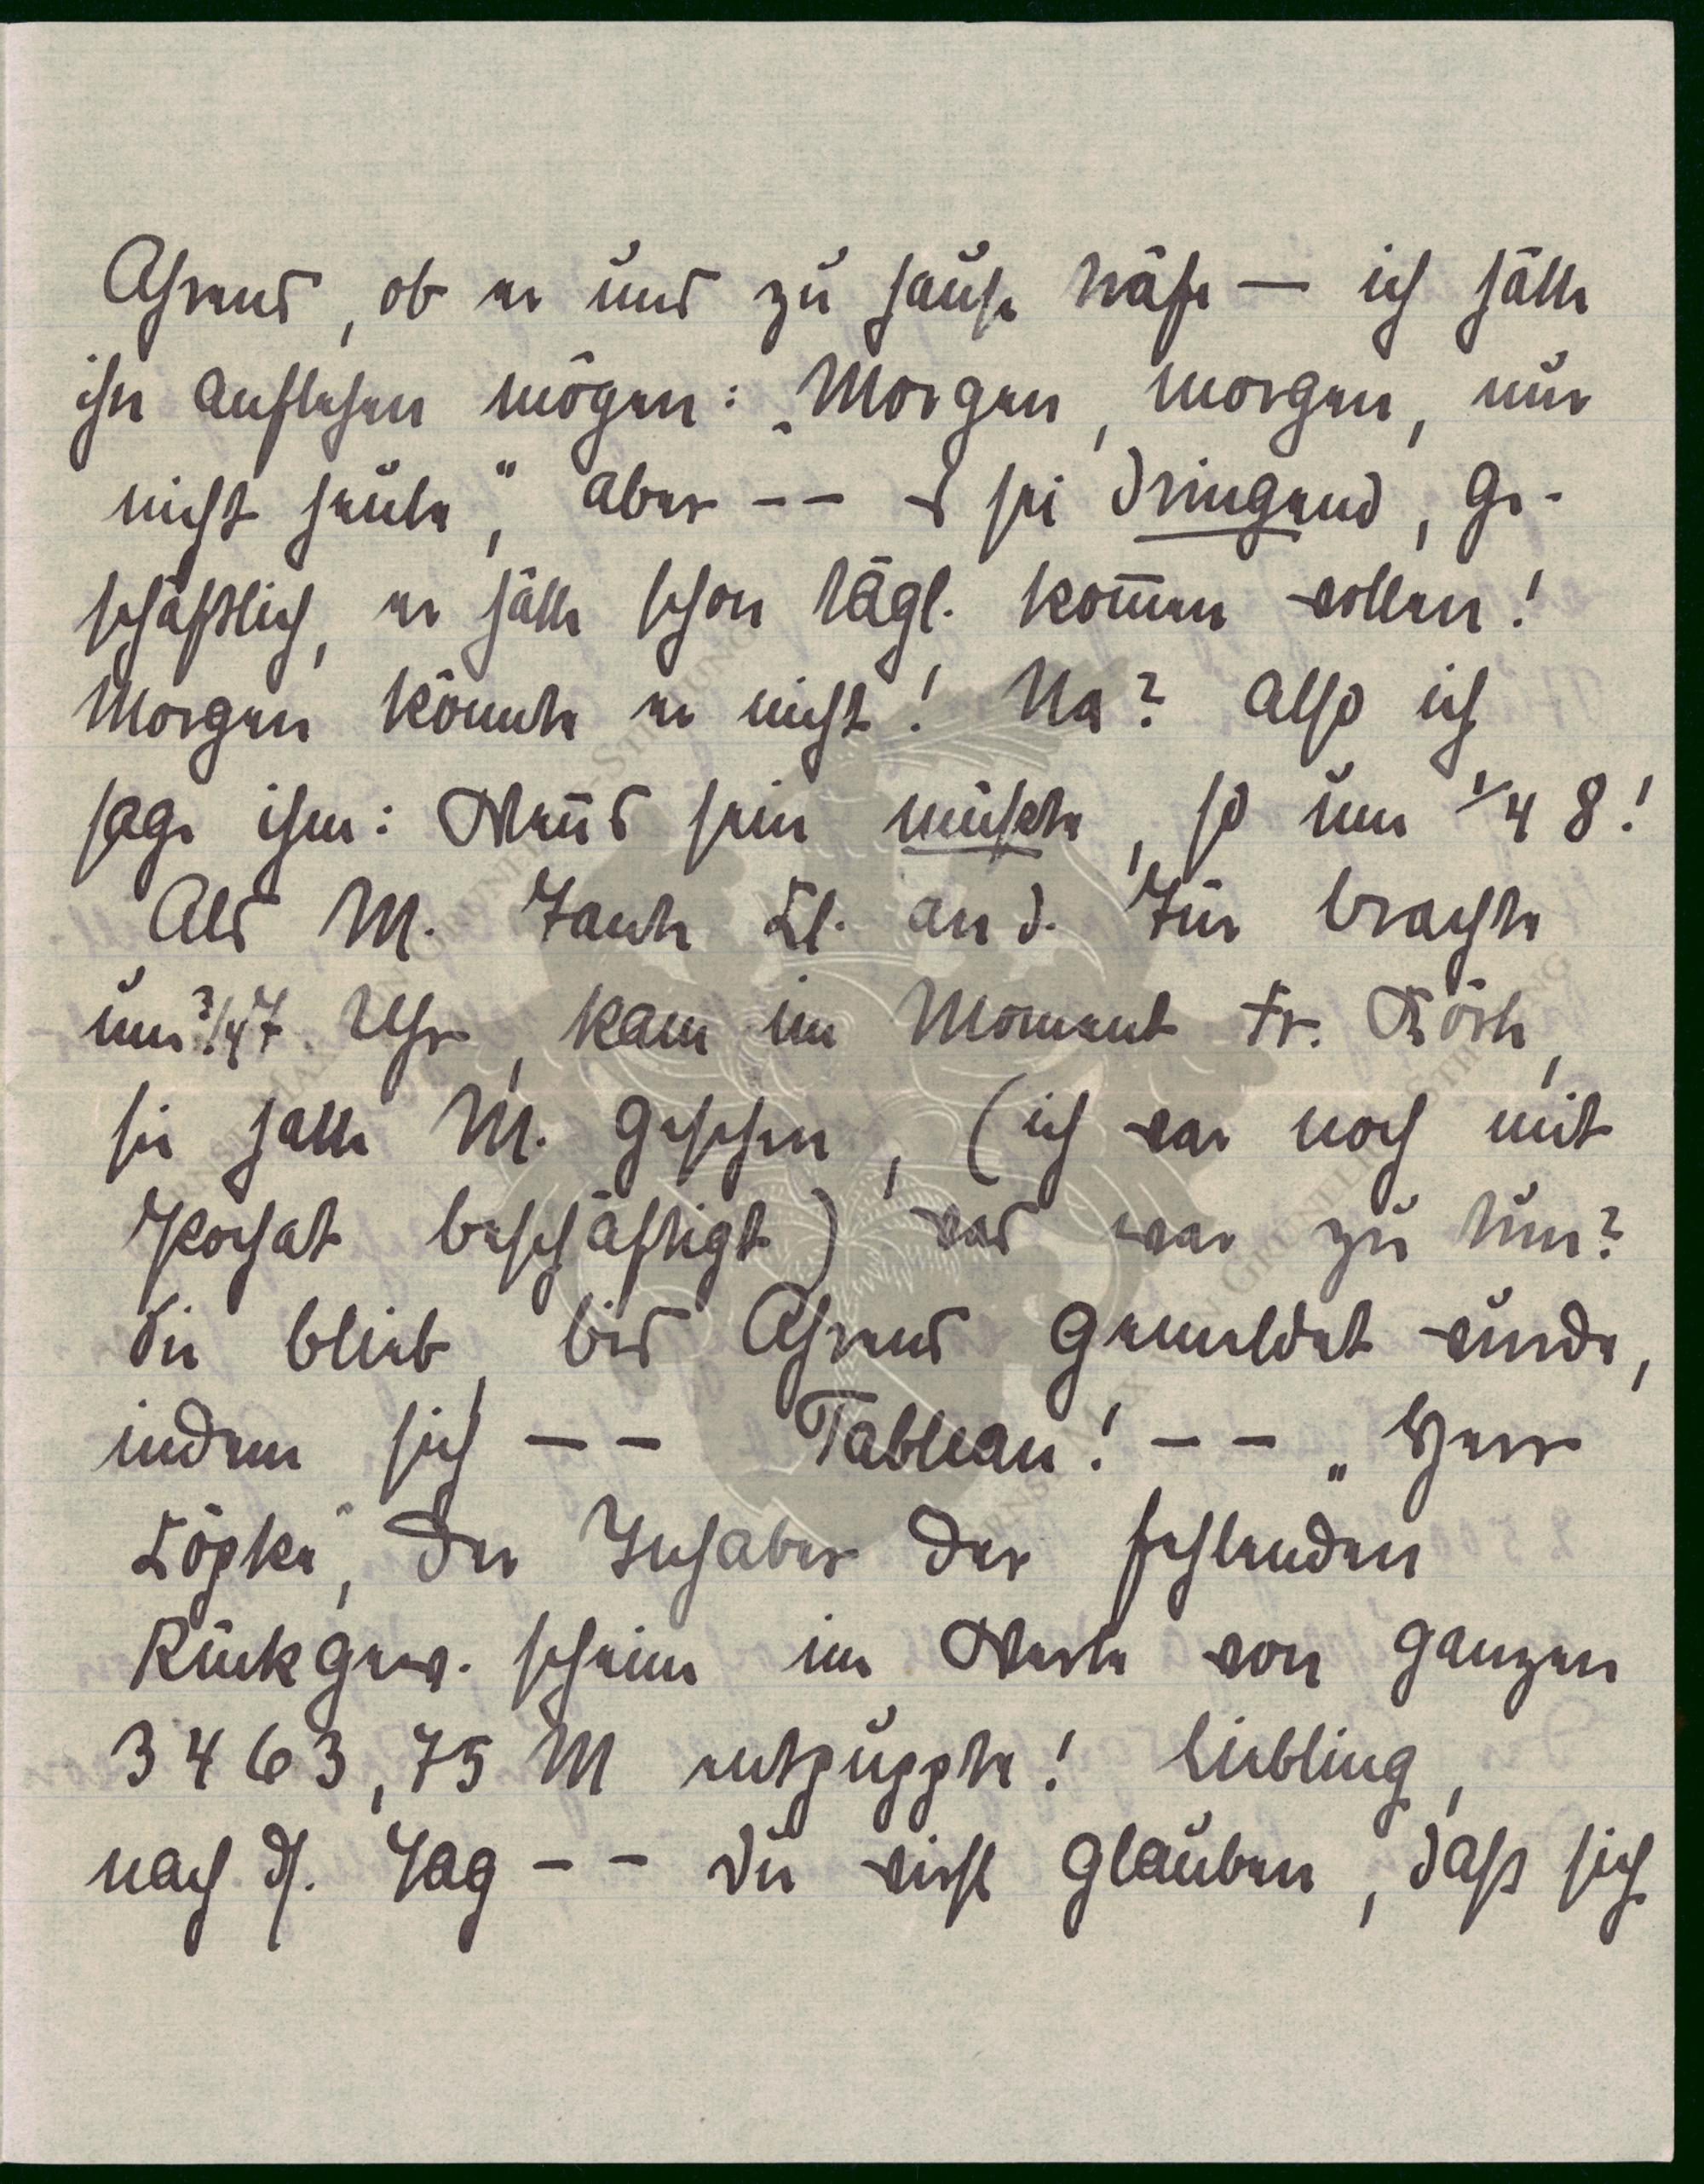 Ahrens, ob er uns zu hause träfe — ich hätte
ihn auffressen mögen: „Morgen, morgen, nur
nicht heute", aber -- es sei dringend, ge-
schäftlich, er hätte schon tägl. kom̅en wollen!
Morgen könnte er nicht! Na? Also ich
sage ihm: Wenn's sein müsste, so um 1/4 8!
Als M. Tante El. an d. Tür brachte
um 3/4 7 Uhr, kam im Moment Fr.
sie hatte M. gesehen, (ich war noch mit
Kochat beschäftigt) was war zu tun?
Sie blieb, bis Ahrens gemeldet wurde,
indem sich -- Tableau! -- „Herr
Töpke", der Inhaber der fehlenden
Rückgew. scheine im Werte von ganzen
3463,75 M entpuppte! Liebling,
nach ds. Tag -- Du wirst glauben, dass sich